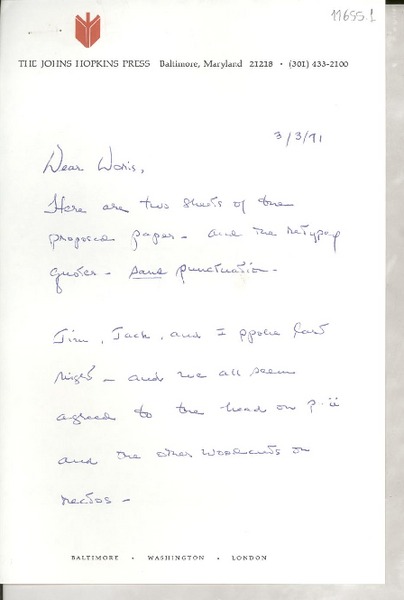 11655.1
THE JOHNS HOPKINS PRESS Baltimore, Maryland 21218 • (301) 433-2100
3/3/71
Dear Doris,
Here are two sheets of the
proposed paper - and the retyped
quotes - sans punctuation -
Jim, Jack, and I spoke last
night - and we all seem
agreed to the head on p. ii
and the other woodcuts on
rectos -
BALTIMORE • WASHINGTON • LONDON